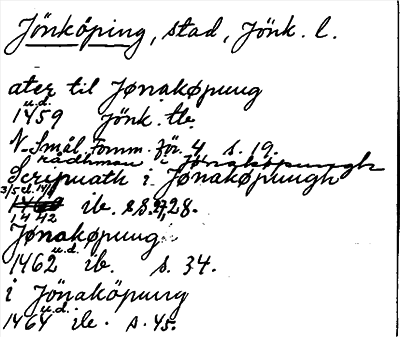 Jönköping, stad, Jönk. l.
ater til Jønakøpung
u.d.
1459 Jönk. tb.
N. Smål. Fornm. för. 4, s. 19.
rådhman i Jönakøpungh
i Jønakøpungh
1442 ib. s. 28.
Jønakøpung
u.d.
1462 ib. s. 34.
i Jönaköpung
u.d.
1464 ib. s. 45.